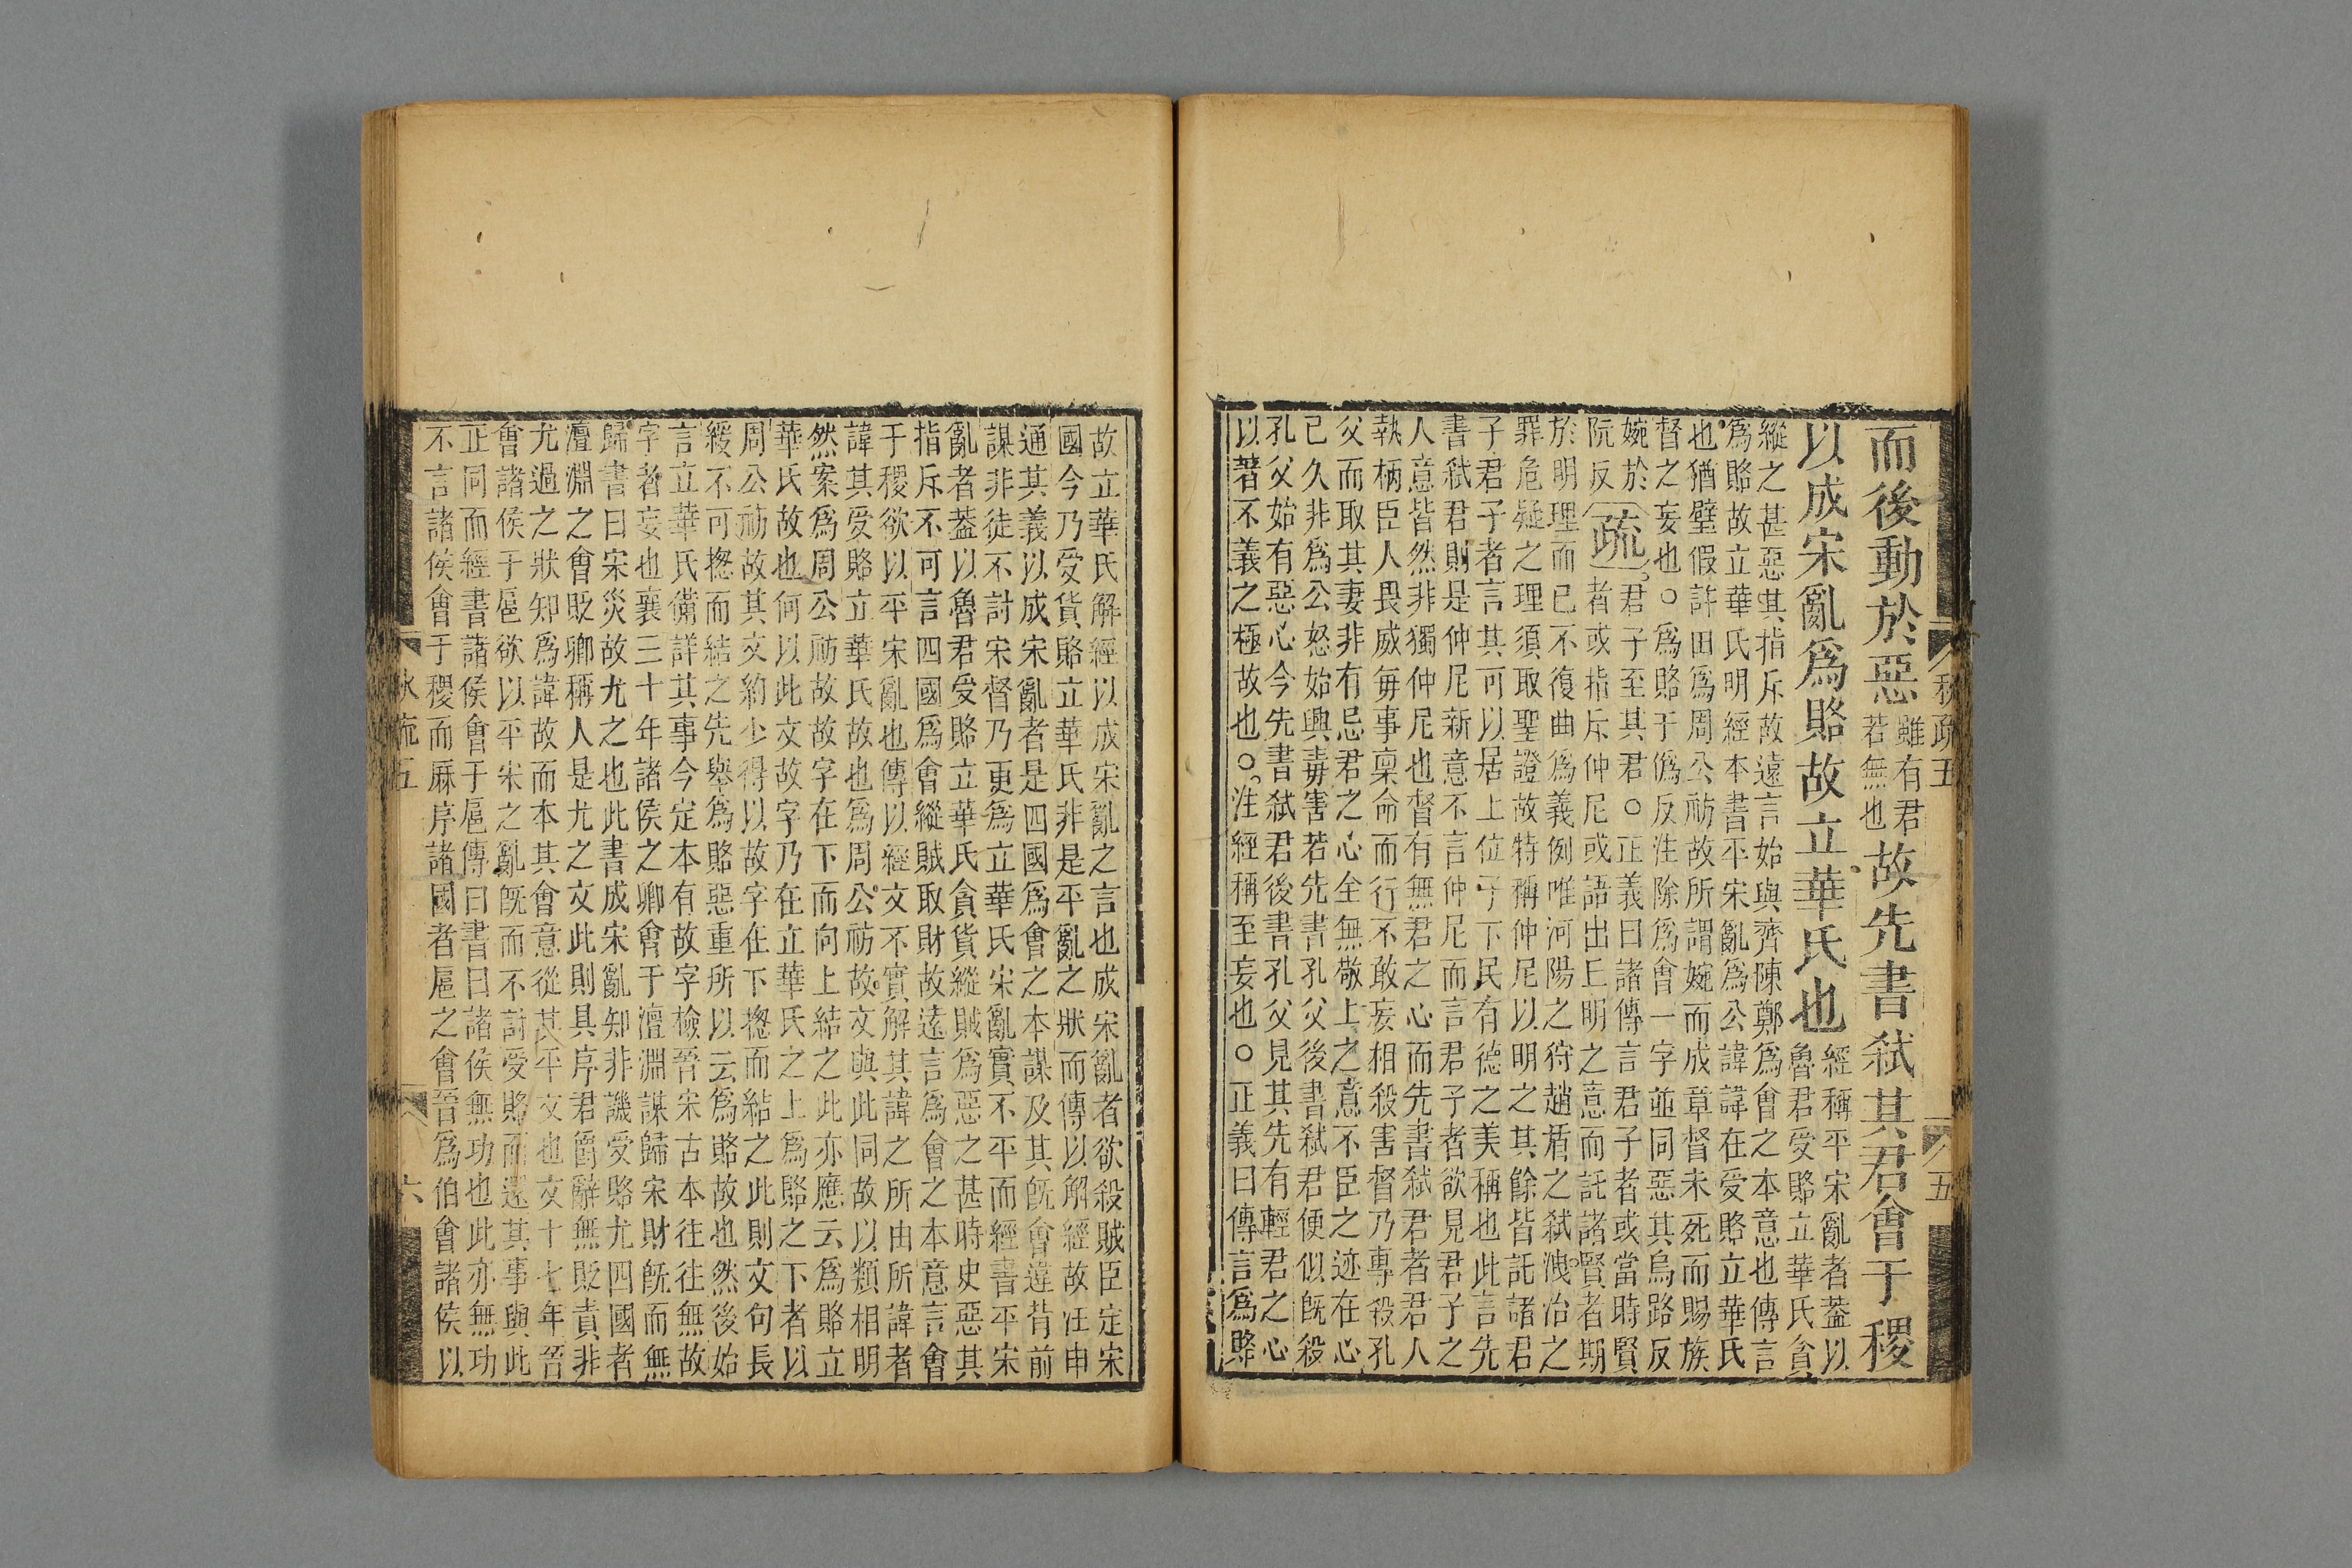 秋疏五
五
而後動於惡雖有君若無也故先書弒其君會于稷
以成宋亂爲賂故立華氏也經稱平宋亂者蓋以
魯君受賂立華氏貪
縱之甚惡其指斥故遠言始與齊陳鄭爲會之本意也傳言
爲賂故立華氏明經本書平宋亂爲公諱諱在受賂立華氏
也猶璧假許田爲周公祊故所謂婉而成章督未死而賜族
督之妄也○爲賂于僞反注除爲會一字並同惡其烏路反
婉於
阮反
疏
君子至其君○正義曰諸傳言君子者或當時賢
者或指斥仲尼或語出丘明之意而託諸賢者期
於明理而已不復曲爲義例唯河陽之狩趙盾之弒洩冶之
罪危疑之理須取聖證故特稱仲尼以明之其餘皆託諸君
子君子者言其可以居上位子下民有德之美稱也此言先
書弒君則是仲尼新意不言仲尼而言君子者欲見君子之
人意皆然非獨仲尼也督有無君之心而先書弒君者君人
執柄臣人畏威每事稟命而行不敢妄相殺害督乃專殺孔
父而取其妻非有忌君之心全無敬上之意不臣之迹在心
已久非爲公怒始興毒害若先書孔父後書弒君便似既殺
孔父始有惡心今先書弒君後書孔父見其先有輕君之心
以著不義之極故也○注經稱至妄也○正義曰傳言爲賂
故立華氏解經以成宋亂之言也成宋亂者欲殺賊臣定宋
國今乃受貨賂立華氏非是平亂之狀而傳以解經故注申
通其義以成宋亂者是四國爲會之本謀及其既會違背前
謀非徒不討宋督乃更爲立華氏宋亂實不平而經書平宋
亂者蓋以魯君受賂立華氏貪貨縱賊爲惡之甚時史惡其
指斥不可言四國爲會縱賊取財故遠言爲會之本意言會
于稷欲以平宋亂也傳以經文不實解其諱之所由所諱者
諱其受賂立華氏故也爲周公祊故文與此同故以類相明
然案爲周公祊故故字在下而向上結之此亦應云爲賂立
華氏故也何以此文故字乃在立華氏之上爲賂之下者以
周公祊故其文約少得以故字在下揔而結之此則文句長
緩不可揔而結之先舉爲賂惡重所以云爲賂故也然後始
言立華氏備詳其事今定本有故字檢晉宋古本往往無故
字者妄也襄三十年諸侯之卿會于澶淵謀歸宋財既而無
歸書曰宋災故尤之也此書成宋亂知非譏受賂尤四國者
澶淵之會貶卿稱人是尤之文此則具序君爵辭無貶責非
尤過之狀知爲諱故而本其會意從其平文也文十七年晉
會諸侯于扈欲以平宋之亂既而不討受賂而還其事與此
正同而經書諸侯會于扈傳曰書曰諸侯無功也此亦無功
不言諸侯會于稷而厤序諸國者扈之會晉爲伯會諸侯以
秋疏五
六